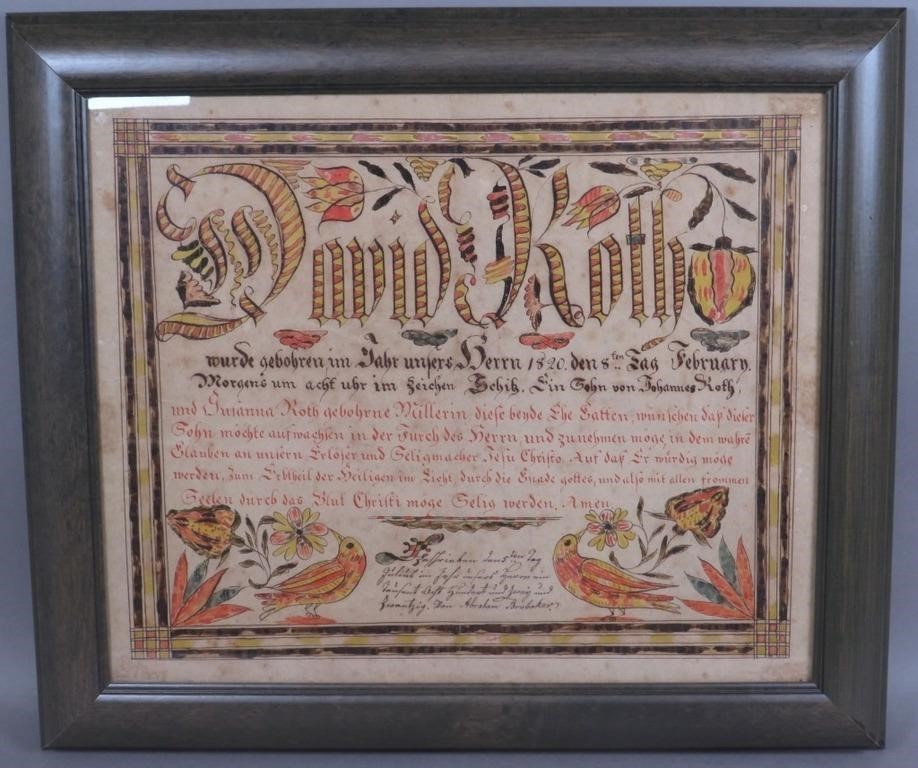 David Roth
wurde gebohren im Jahr unsers Herrn 1820. den 8ten Tag February.
Morgens um acht uhr im Zeichen Schitz. Ein Sohn von Johannes Roth,
und Susanna Roth gebohrne Millerin diese beyde Ehe Gatten, wünschen daß dieser
Sohn möchte aufwachsen in der Furch des Herrn, und zunehmen möge, in dem wahrē
Glauben an unsern Erlöser und Seligmacher Jesu Christo. Auf daß Er würdig möge
werden, Zum Erbtheil der Heiligen im Licht, durch die Gnade gottes, und also mit allen frommen
Seelen durch das Blut Christi möge Selig werden. Amen.
Geschrieben den 5ten Tag
Julius im Jahr unsers Herrn ein
tausent Acht Hundert und Zway und
Zwantzig. Von Abraham Brubaker